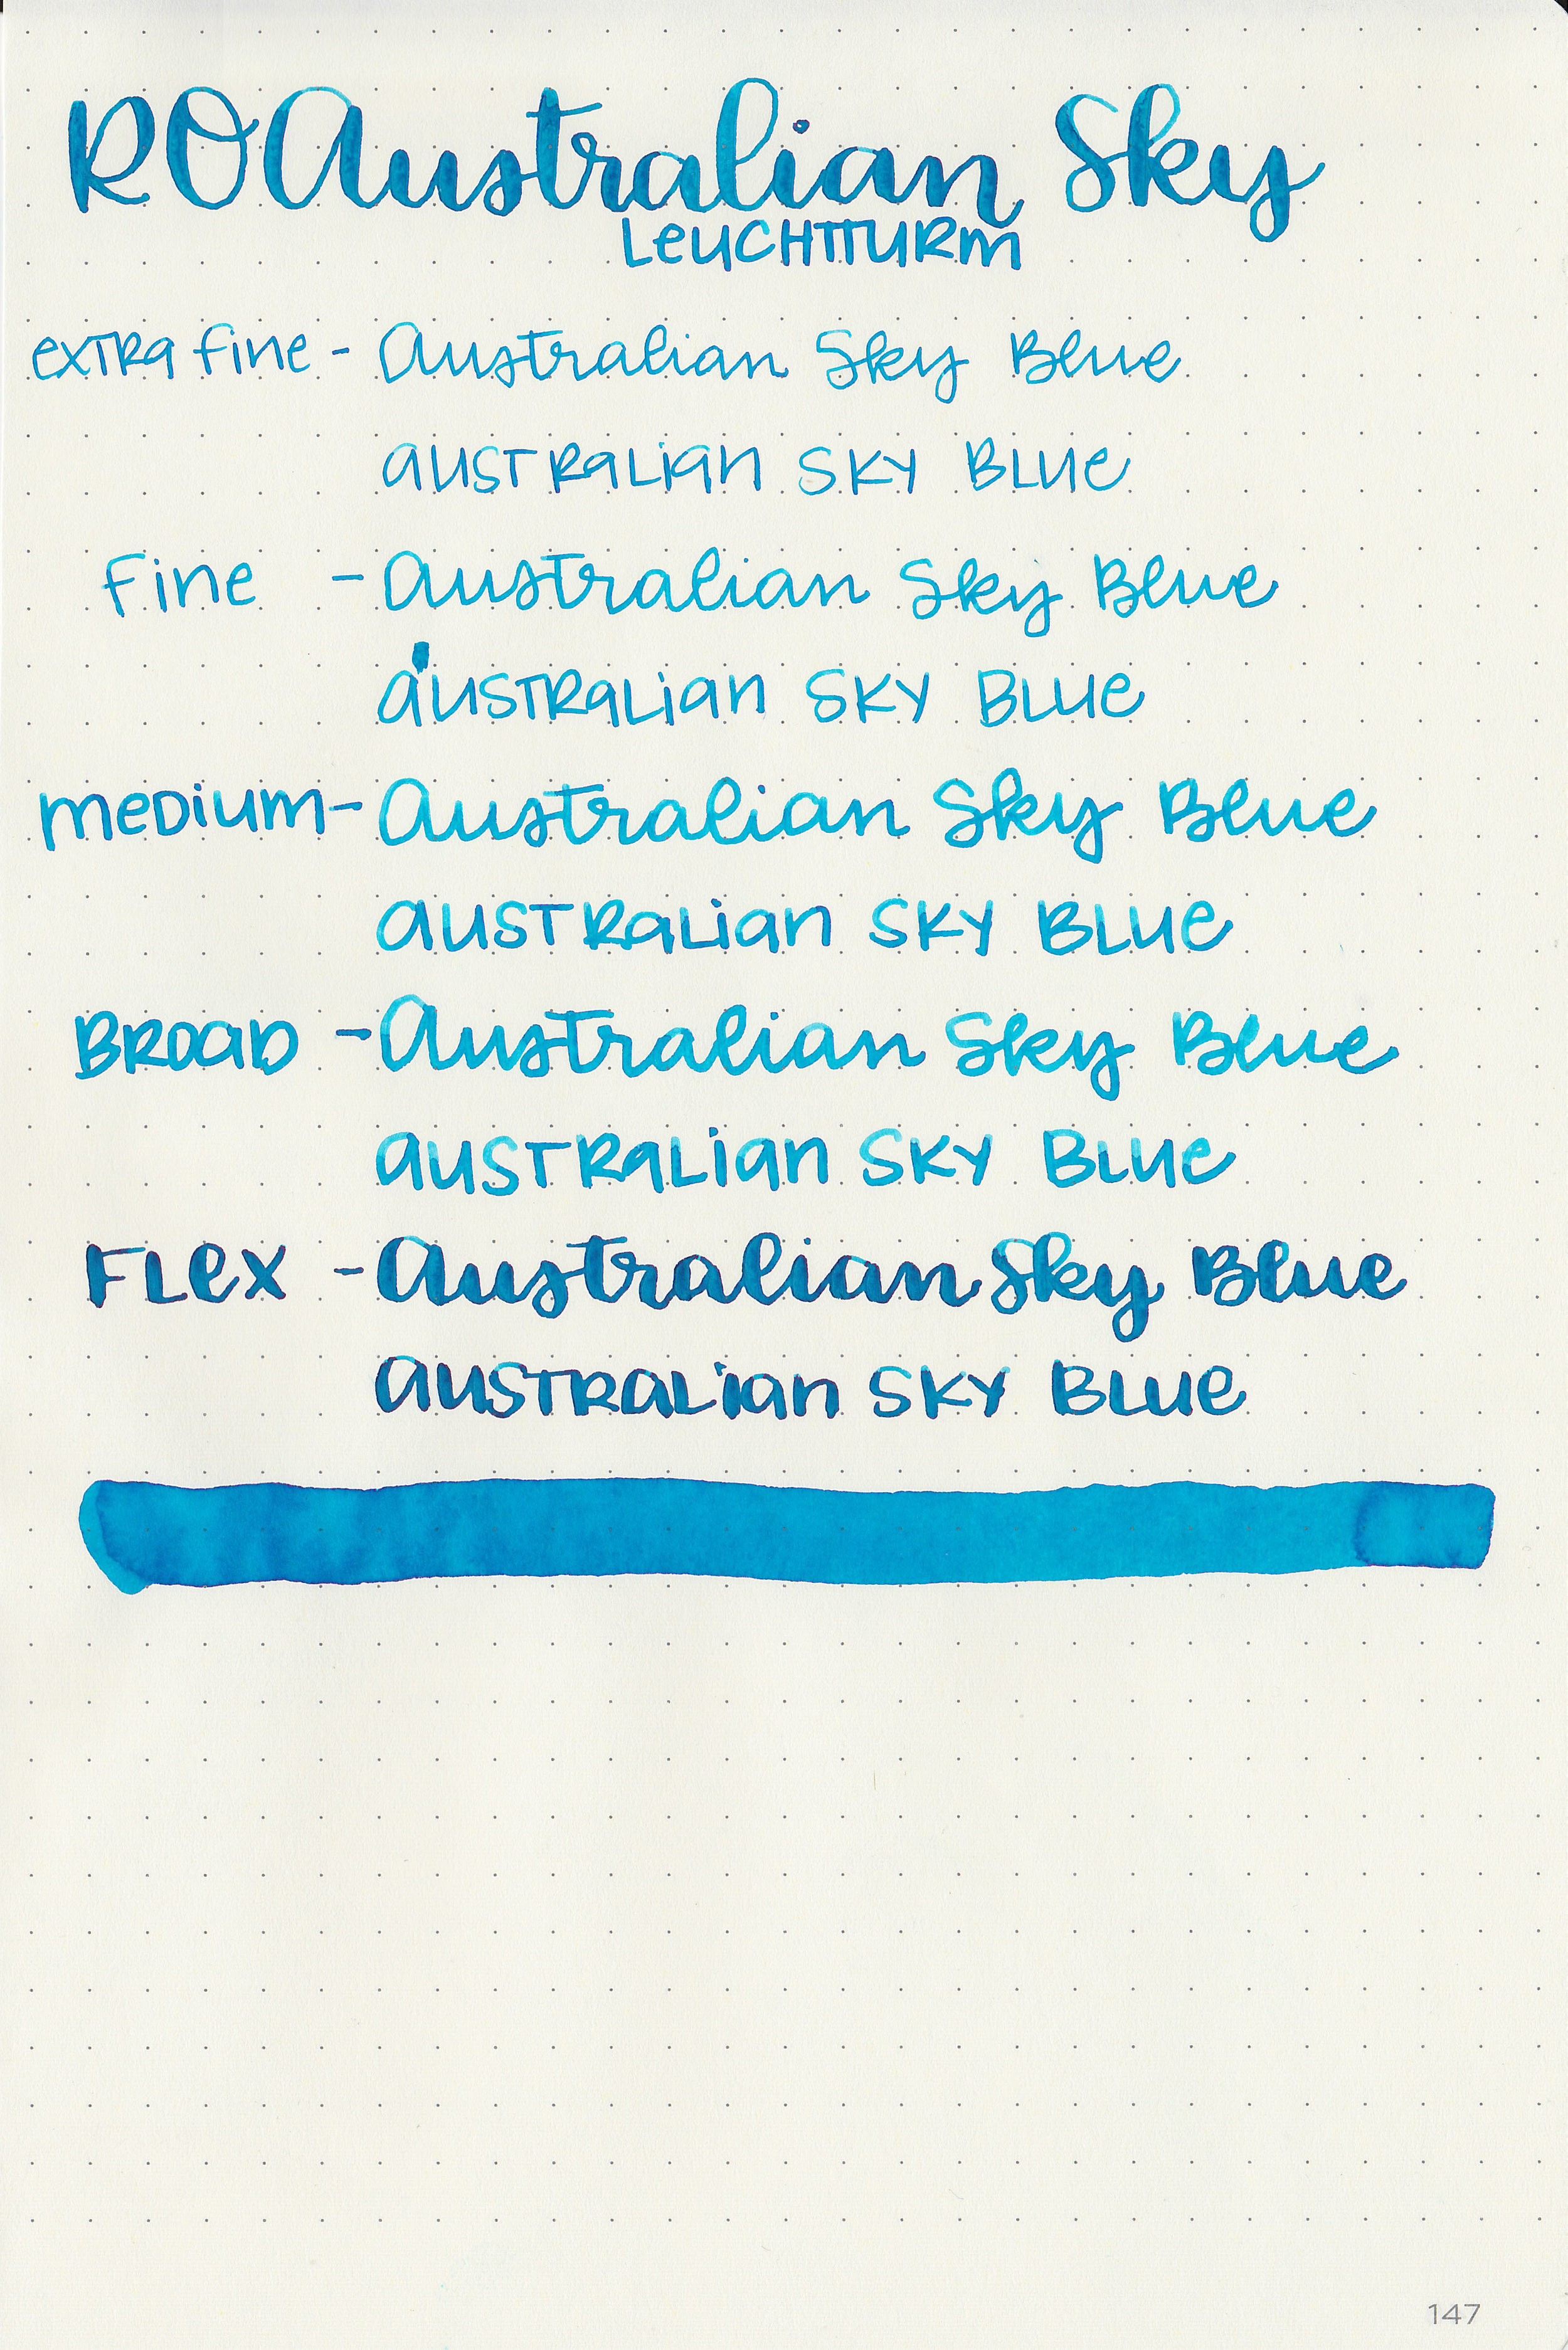 RO Australian Sky
Leuchtturm
extra fine - Australian Sky Blue
Australian Sky Blue
fine - Australian Sky Blue
Australian Sky Blue
medium - Australian Sky Blue
Australian Sky Blue
Broad - Australian Sky Blue
Australian Sky Blue
Flex - Australian Sky Blue
Australian Sky Blue
147